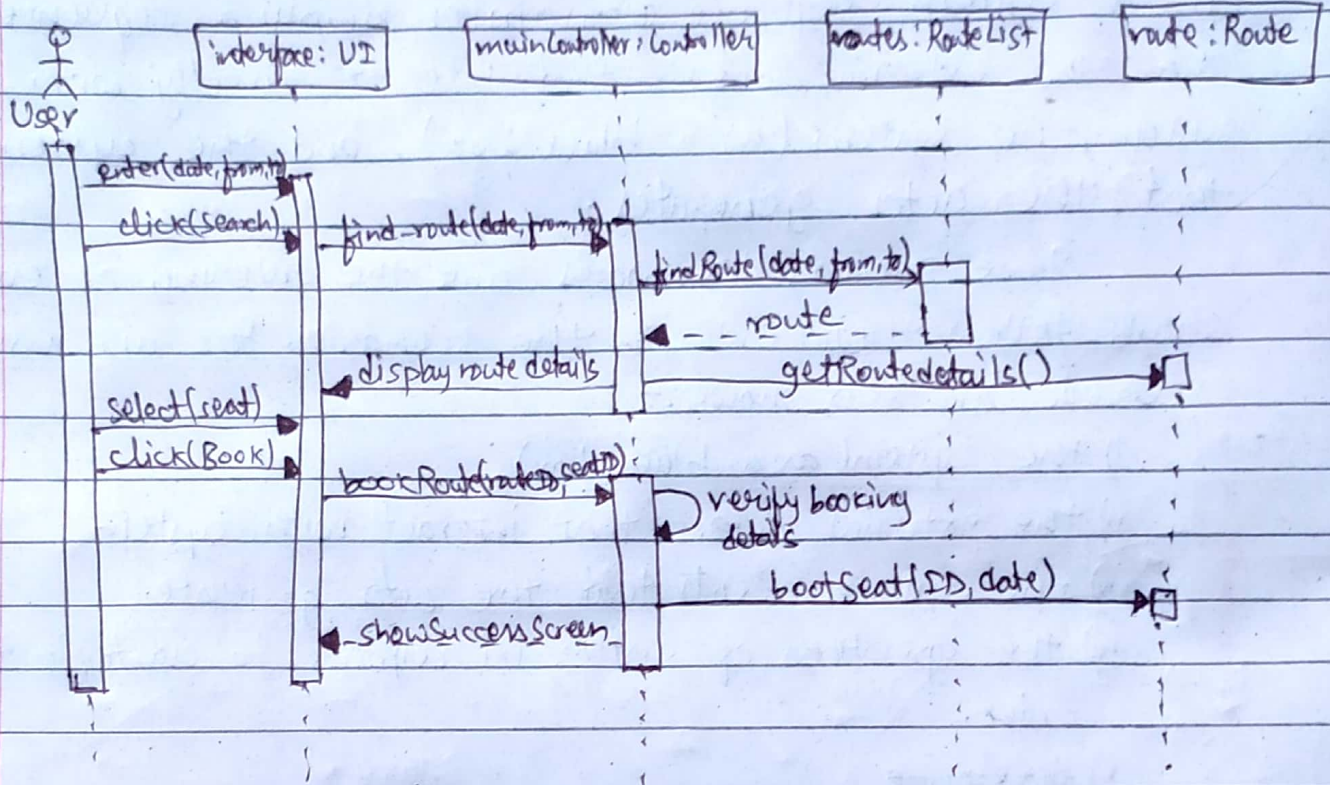 interface: UI
mainController: Controller
routes: RouteList
route: Route
User
enter(date, from, to)
click(search)
find_route(date, from, to)
findRoute(date, from, to)
route
display route details
getRoutedetails()
select(seat)
click(Book)
bookRoute(routeID, seatID)
verify booking
details
bootSeat(ID, date)
showSuccessScreen